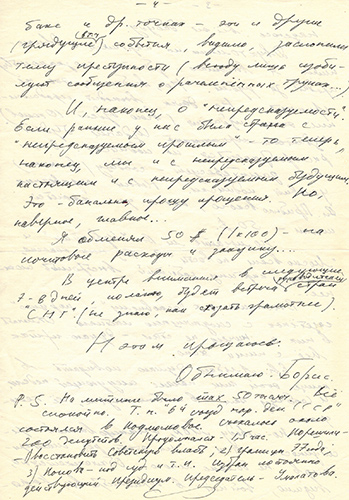 - 4 -
баке и др. точках - эти и другие
(грядущие) события, видимо, заслонили
тему преступности (всюду лишь изоби-
луют сообщения о расчленённых трупах...)
И, наконец, о "непредсказуемости".
Если раньше у нас была страна с
"непредсказуемым прошлым" - то теперь,
наконец, мы и с непредсказуемым
настоящим и с непредсказуемым будущим.
Это - банально, прошу прощения. Но,
наверное, главное...
Я обменял 50 $ (1x100) - на
почтовые расходы и закуску...
В центре внимания в следующие
7-8 дней, полагаю, будет встреча руководителей стран
"СНГ" (не знаю, как сказать грамотнее).
На этом прощаюсь.
Обнимаю. Борис.
P.S. На митинге было max. 50 тысяч. Всё
спокойно. Т.н. "6й съезд нар. деп. СССР"
состоялся в Подмосковье. Съехалось около
200 депутатов. Продолжался 1,5 час. Порешили -
1) Восстановить Советскую власть, 2) границы
3) под суд и т.п. Избран постоянно
действующий президиум. Председатель - Умалатова.